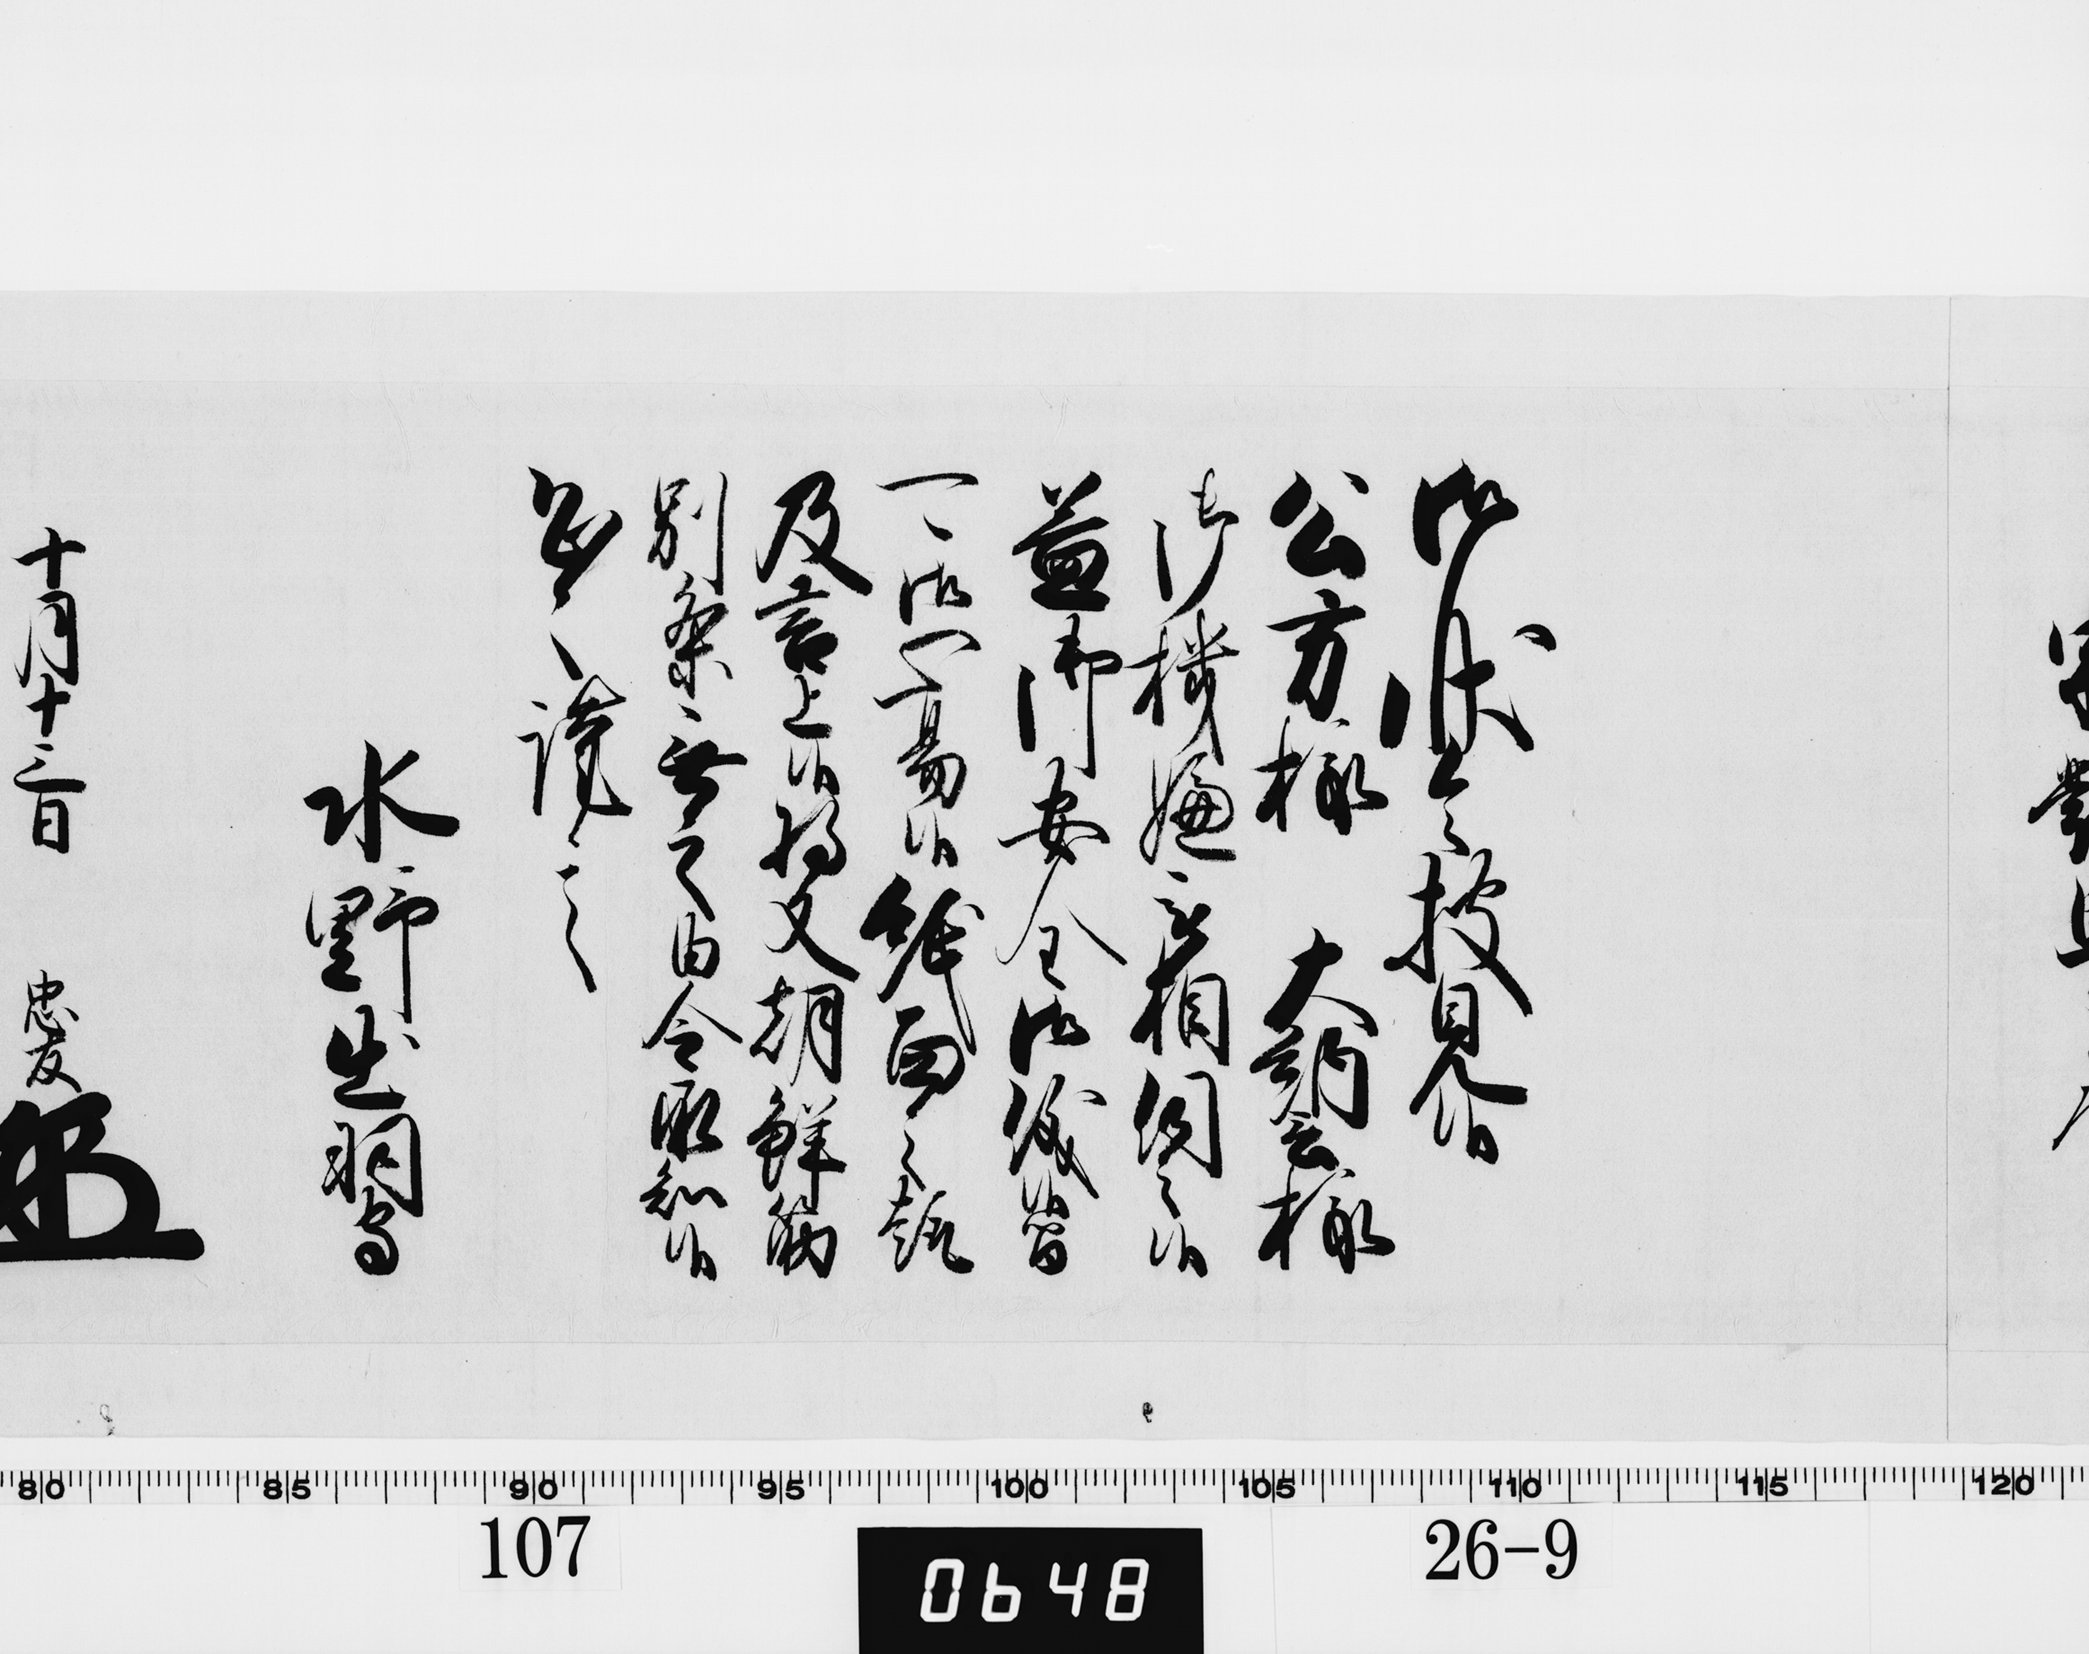 御状令披見候
公方様 大納言様
御機嫌被相伺之候
益御安全御儀候間
可御心易候紙面之趣
及言上候将又朝鮮筋
別条無之由令承知候
恐々謹言
水野出羽守
十月十三日 忠友
80 85 90 95 100 105 110 115 120
107
26-9
0648